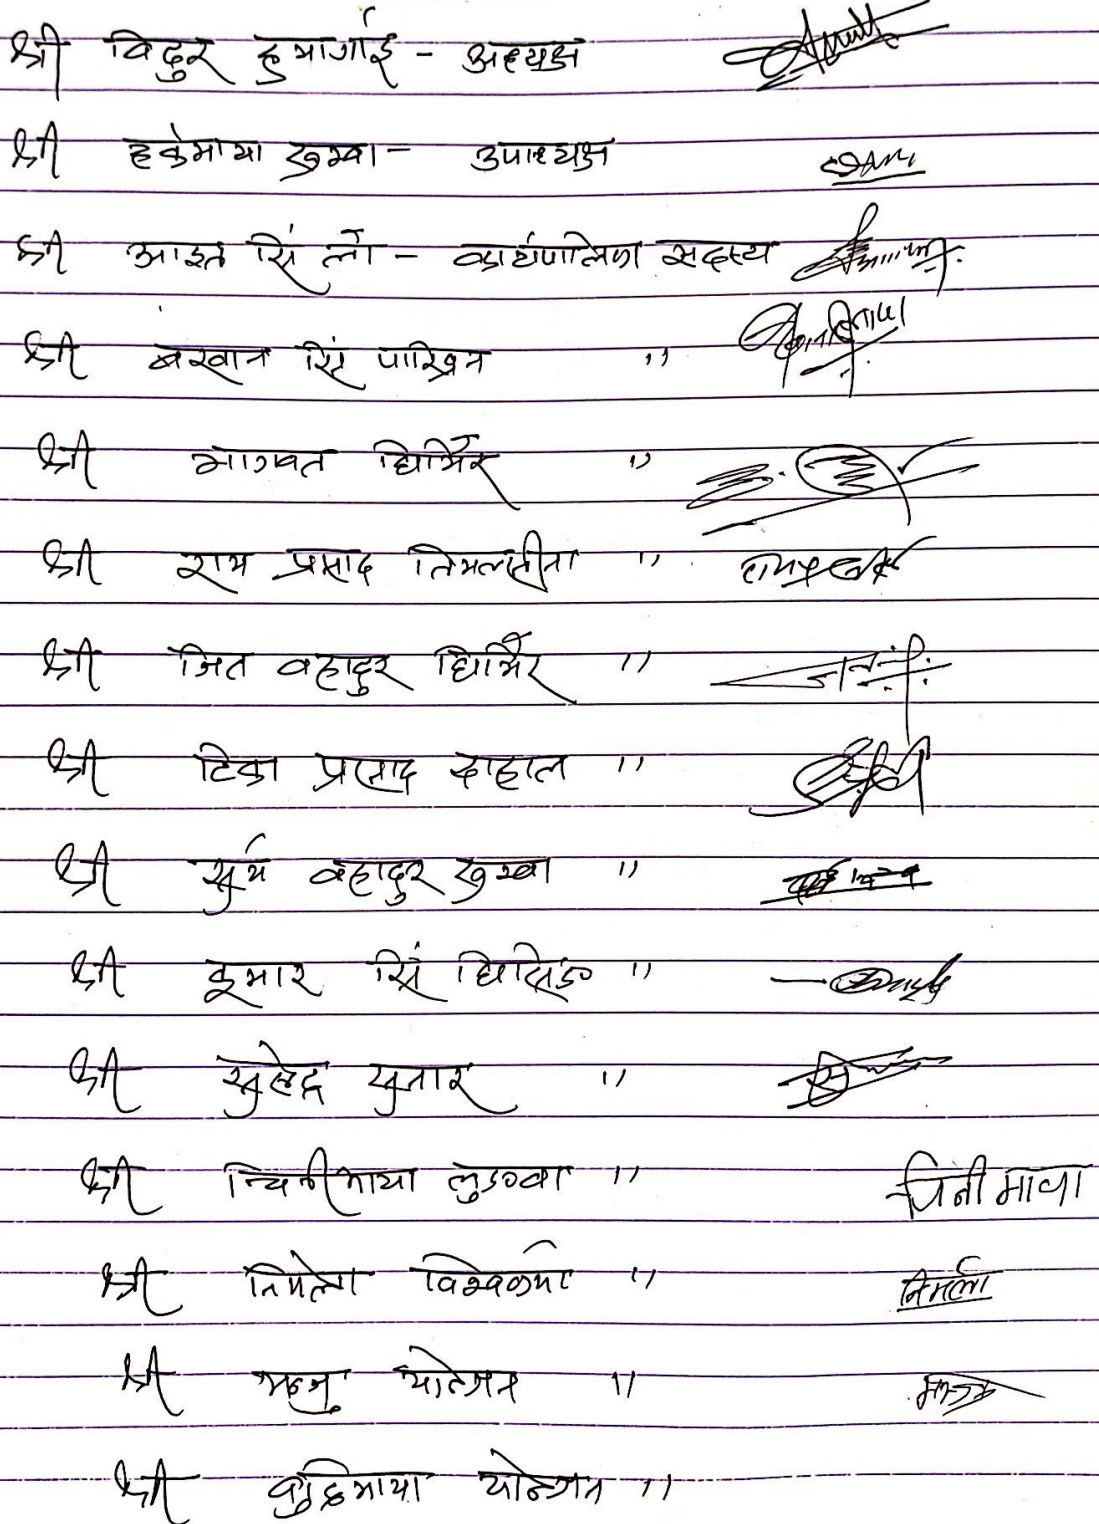 श्री विदुर हुमागाई - अध्यक्ष
श्री हर्कमाया रुम्बा - उपाध्यक्ष
श्री आइत सिं लो - कार्यपालिका सदस्य
श्री बखान सिं पाख्रिन "
श्री भागवत घिमिरे "
श्री राम प्रसाद तिमल्सीना "
श्री जित बहादुर घिमिरे "
श्री टिका प्रसाद दाहाल "
श्री सुर्य बहादुर रुम्बा "
श्री कुमार सिं घिसिङ "
श्री सुनार "
श्री चिनीमाया लुङवा " चिनी माया
श्री निर्मला विश्वकर्मा " निर्मला
श्री मन्जु योन्जन "
श्री वुद्धिमाया योन्जन "